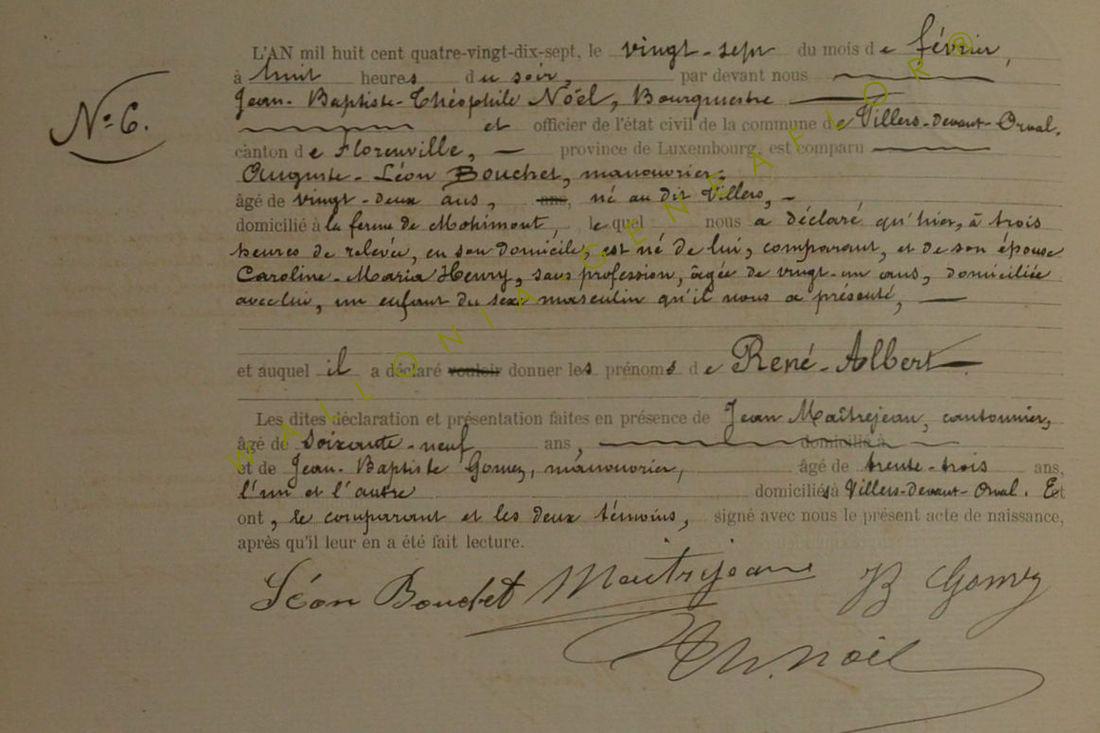 L'AN mil huit cent quatre-vingt-dix-sept, le vingt-sept du mois de février,
à huit heures du soir, par devant nous
N° 6.
Jean-Baptiste-Théophile Noël, Bourgmestre
et officier de l'état civil de la commune de Villers-devant-Orval.
canton de Florenville, — province de Luxembourg, est comparu
Auguste-Léon Bouchet, manouvrier,
âgé de vingt-deux ans, ans, né au dit Villers, -
domicilié à la ferme de Mohimont, le quel nous a déclaré qu'hier, à trois
heures de relevée, en son domicile, est né de lui, comparant, et de son épouse
Caroline-Maria Henry, sans profession, âgée de vingt-un ans, domiciliée
avec lui, un enfant du sexe masculin qu'il nous a présenté, —
et auquel il a déclaré vouloir donner les prénoms de René-Albert —
Les dites déclaration et présentation faites en présence de Jean Maîtrejean, cantonnier,
âgé de soixante-neuf ans, domicilié à
et de Jean-Baptiste Gomez, manouvrier, âgé de trente-trois ans,
l'un et l'autre domiciliés à Villers-devant-Orval. Et
ont, le comparant et les deux témoins, signé avec nous le présent acte de naissance,
après qu'il leur en a été fait lecture.
Léon Bouchet Maitrejean JB Gomez
Th. Noël